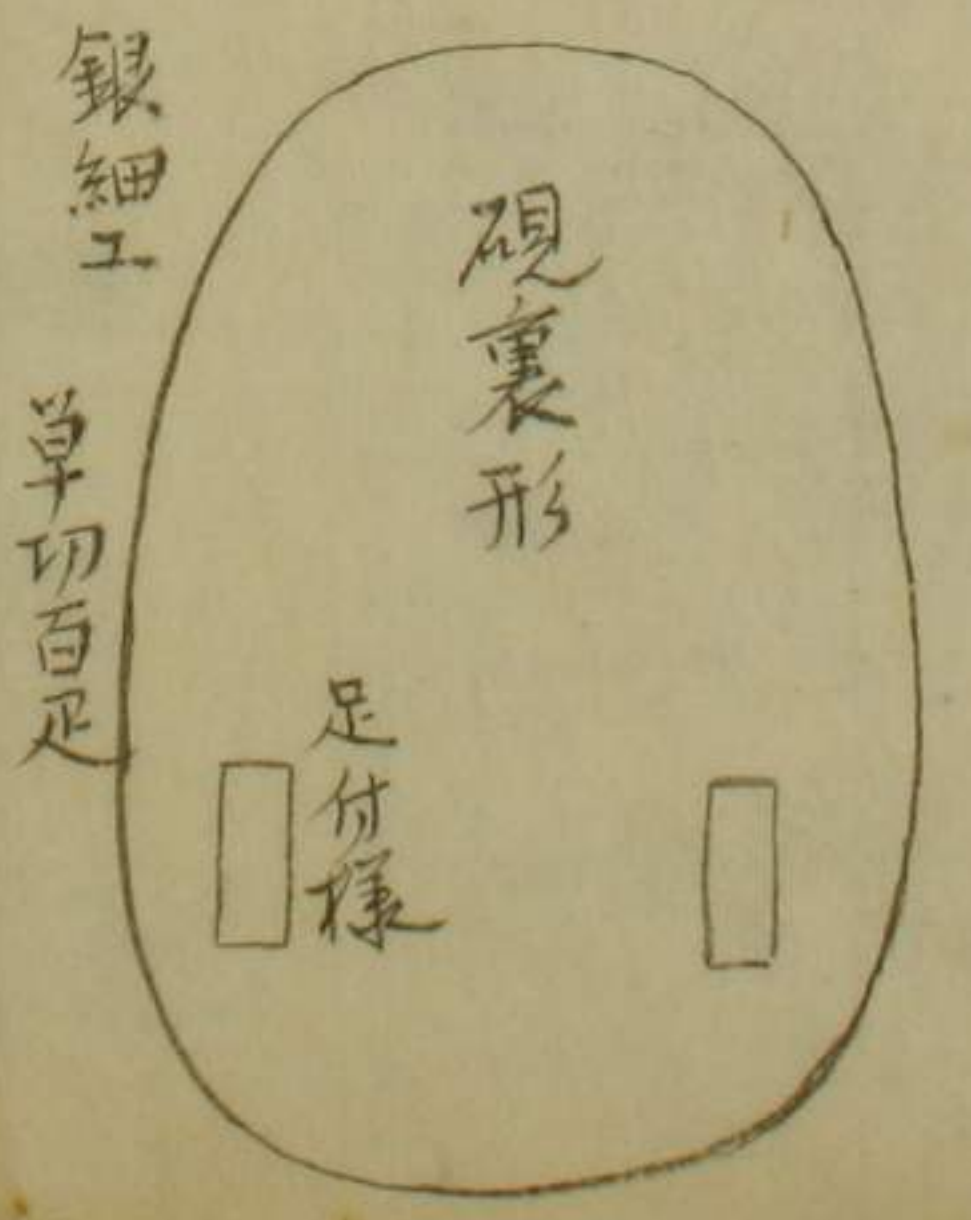 硯裏形
足付様
銀細工
草切百疋